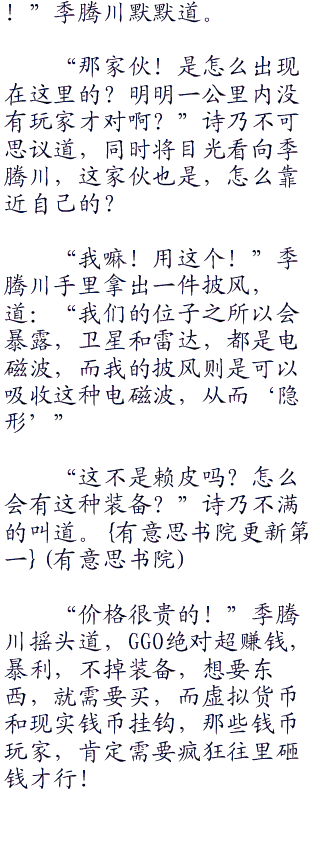 ！”季腾川默默道。
“那家伙！是怎么出现
在这里的？明明一公里内没
有玩家才对啊？”诗乃不可
思议道，同时将目光看向季
腾川，这家伙也是，怎么靠
近自己的？
“我嘛！用这个！”季
腾川手里拿出一件披风，
道：“我们的位子之所以会
暴露，卫星和雷达，都是电
磁波，而我的披风则是可以
吸收这种电磁波，从而‘隐
形’”
“这不是赖皮吗？怎么
会有这种装备？”诗乃不满
的叫道。{有意思书院更新第
一}(有意思书院)
“价格很贵的！”季腾
川摇头道，GGO绝对超赚钱，
暴利，不掉装备，想要东
西，就需要买，而虚拟货币
和现实钱币挂钩，那些钱币
玩家，肯定需要疯狂往里砸
钱才行！